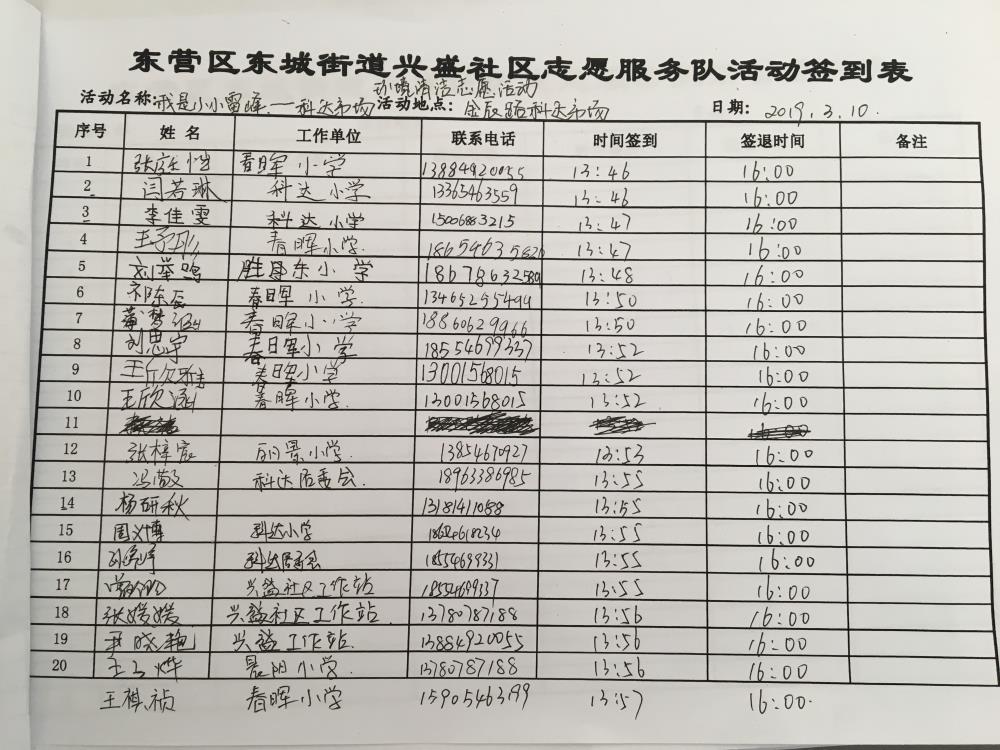 东营区东城街道兴盛社区志愿服务队活动签到表
环境清洁志愿活动
活动名称:我是小小雷峰——科达市场 活动地点: 金辰路科达市场 日期: 2019.3.10
序号 姓名 工作单位 联系电话 时间签到 签退时间 备注
1 春晖小学 13884920055 13:46 16:00
2 闫若琳 科达小学 13365463559 13:46 16:00
3 李佳雯 科达小学 15006863215 13:47 16:00
4 春晖小学. 13:47 16:00
5 刘举鸣 胜东小学 13:48 16:00
6 祁东辰 春晖小学. 13465255494 13:50 16:00
7 春晖小学 18860629966 13:50 16:00
8 刘思宇 春晖小学 18554699337 13:52 16:00
9 王欣雅 春晖小学 13001568015 13:52 16:00
10 王欣涵 春晖小学. 13001568015 13:52 16:00
11 16:00
12 张梓宸 丽景小学 13854670927 13:53 16:00
13 冯敬 科达居委会 18963386985 13:55 16:00
14 杨研秋 13181411088 13:55 16:00
15 周义博 科达小学 13:55 16:00
16 科达居委会 18554699331 13:55 16:00
17 兴盛社区工作站 18554699337 13:55 16:00
18 张媛媛 兴盛社区工作站. 13780787188 13:56 16:00
19 尹晓艳 兴盛工作站. 13884920055 13:56 16:00
20 晨阳小学. 13780787188 13:56 16:00
王祺祯 春晖小学 15905463199 13:57 16:00.